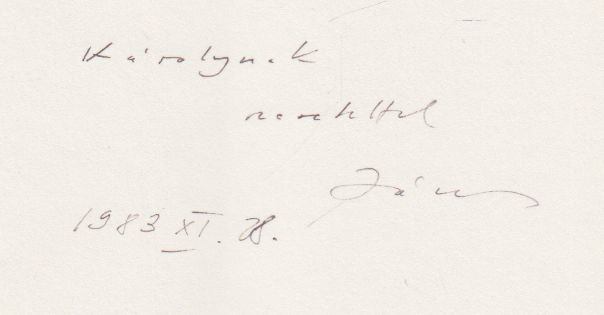 Károlynak
szeretettel
János
1983 XI. 28.